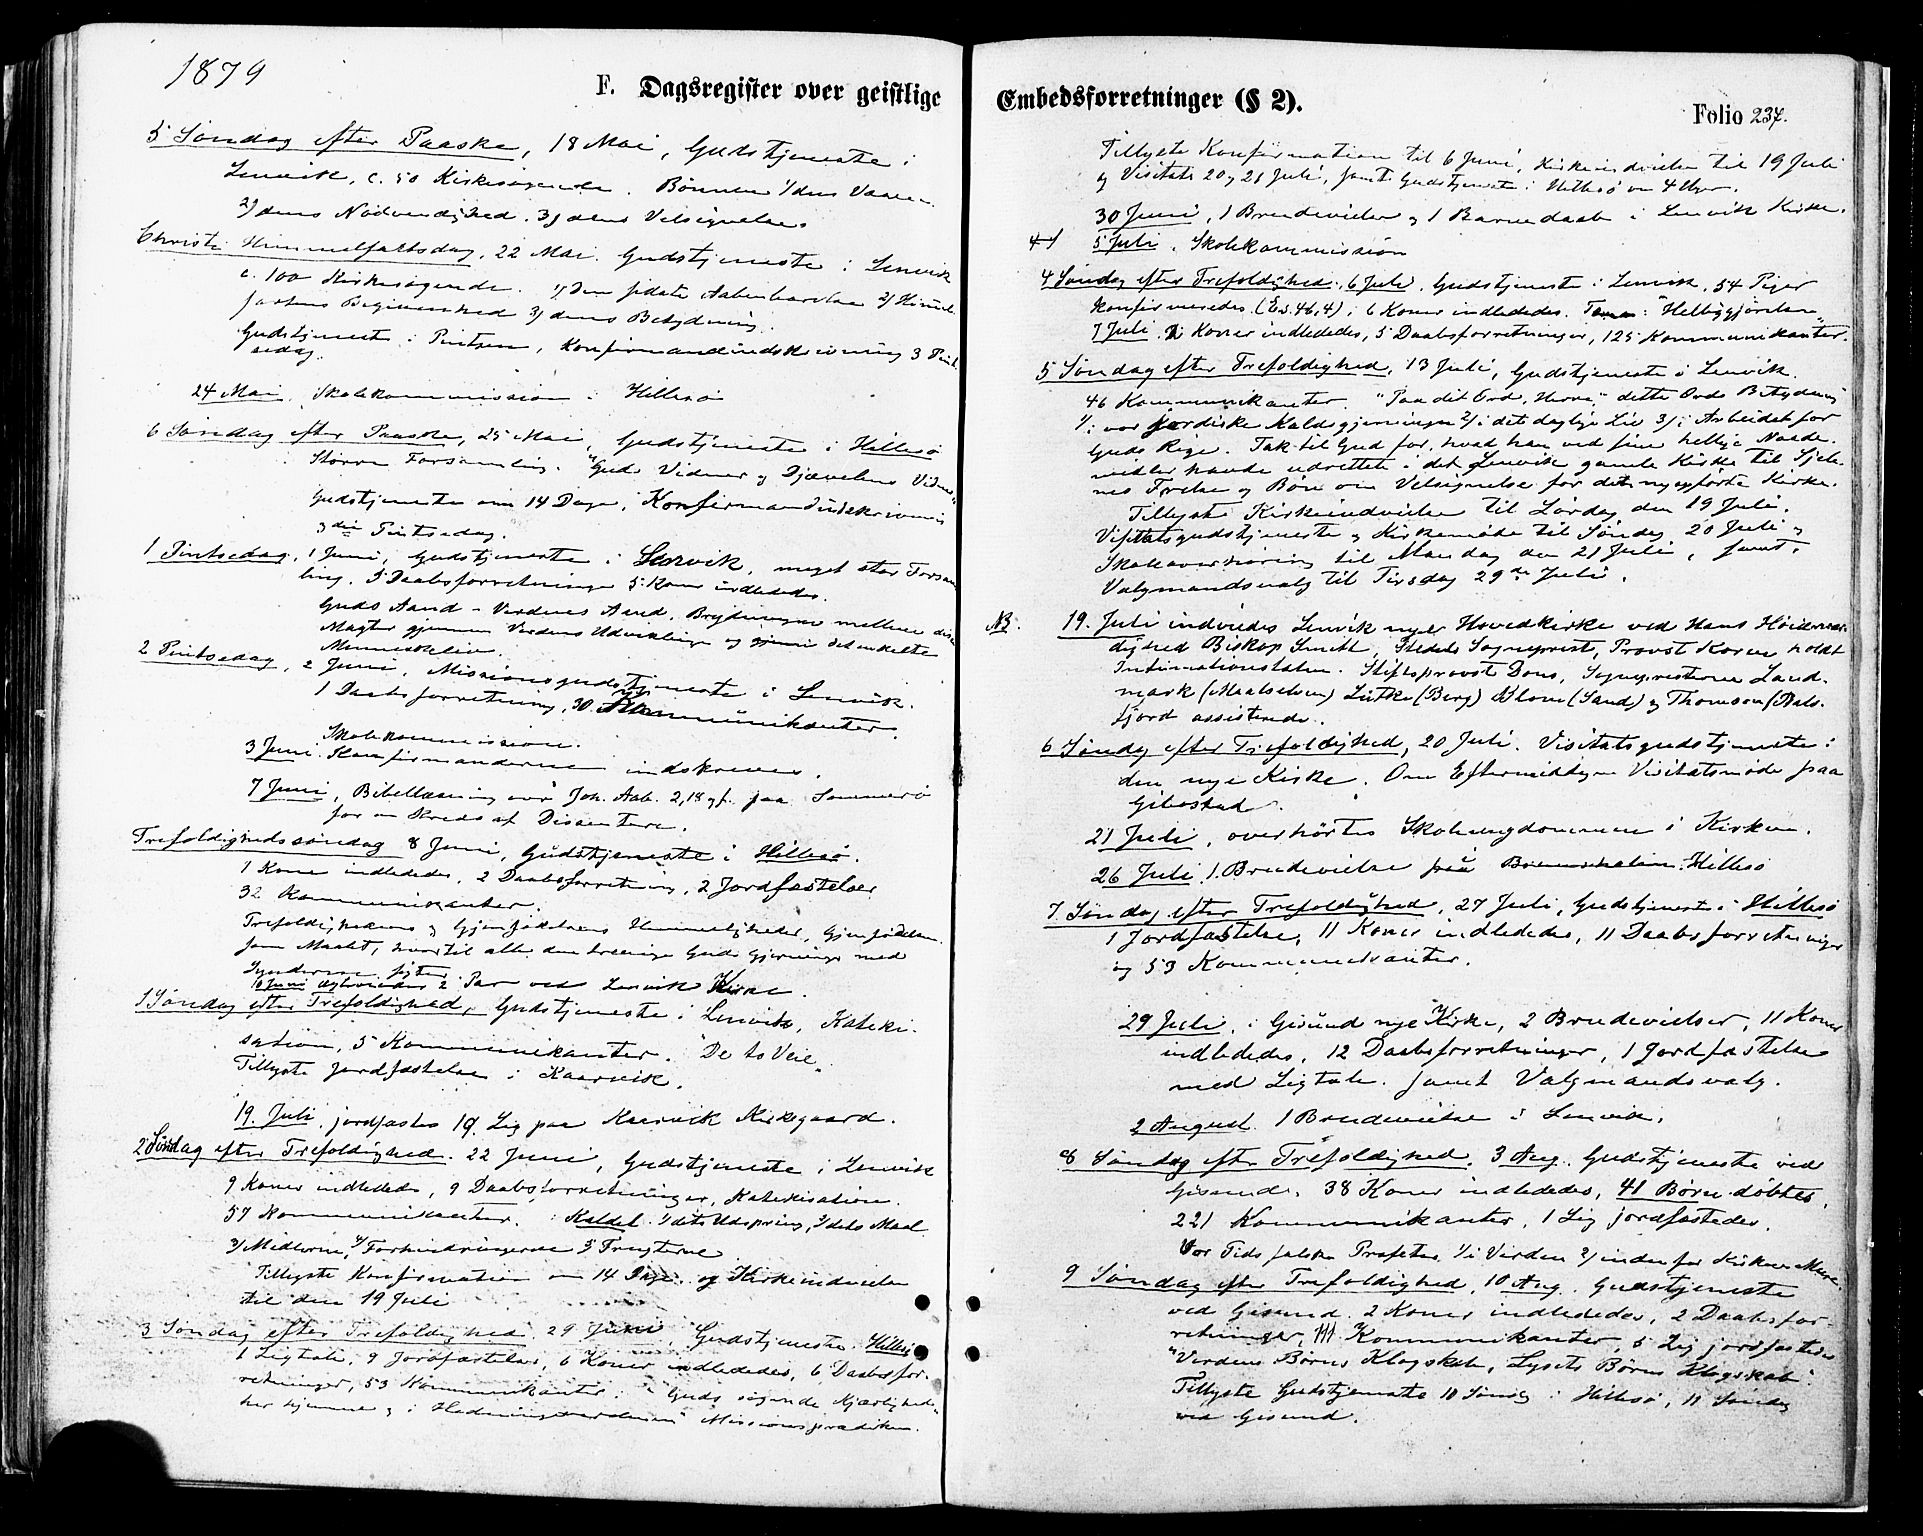 1879
F. Dagsregister over geistlige
5 Søndag efter Paaske, 18 Mai, Gudstjeneste i
Lenvik, c. 50 Kirkesøgende. Bønnen 1/ dens Væsen
2) dens Nødvendighed. 3) dens Velsignelse.
Christi Himmelfartsdag, 22 Mai. Gudstjeneste i Lenvik
c. 100 Kirkesøgende. 1) Den sidste Aabenbarelse 2) Himmel-
fartens Begivenhed 3) dens Betydning.
Gudstjeneste i Pintsen, Konfirmandindskrivning 3 Pint-
sedag.
24 Mai, Skolekommission i Hillesö
6 Søndag efter Paaske, 25 Mai, Gudstjeneste i Hillesö
Større Forsamling. "Guds Vidner og Djævelens Vidner"
Gudstjeneste om 14 Dage, Konfirmandindskrivning
3die Pintsedag.
1 Pintsedag, 1 Juni, Gudstjeneste i Lenvik, meget stor Forsam-
ling. 5 Daabsforretninger 5 Koner indlededes.
Guds Aand - Verdens Aand. Brydningen mellem disse
Magter gjennem Verdens Udvikling og gjennem det enkelte
Menneskeliv.
2 Pintsedag, 2 Juni, Missionsgudstjeneste i Lenvik.
1 Daabsforretning, 30 Kommunikanter.
Skolekommission.
3 Juni. Konfirmanderne indskreves.
7 Juni, Bibellæsning over Joh. Aab. 2,18 gf. paa Sommerö
for en Kreds af Dissentere.
Trefoldighedssøndag 8 Juni, Gudstjeneste i Hillesö.
1 Kone indlededes, 2 Daabsforretning, 2 Jordfæstelser
32 Kommunikanter.
Trefoldighedens og Gjenfødelsens Hemmeligheder, Gjenfødelsen
som Maalet, hvortil alle den treenige Guds Gjerninger med
Synderne sigter.
10 Juni ægteviedes 2 Par ved Lenvik Kirke.
1 Søndag efter Trefoldighed, Gudstjeneste i Lenvik, Kateki-
sation, 5 Kommunikanter. "De to Veie"
Tillyste Jordfæstelse i Kaarvik.
19. Juli jordfæstes 19 Lig paa Kaarvik Kirkegaard.
2 Søndag efter Trefoldighed. 22 Juni, Gudstjeneste i Lenvik
9 Koner indlededes, 9 Daabsforretninger, Katekisation.
57 Kommunikanter. Kaldet 1/ dets Udspring, 2/ dets Maal
3/ Midlerne, 4/ Forhindringerne 5 Frugterne
Tillyste Konfirmation om 14 Dage og Kirkeindvielse
til den 19 Juli
3 Søndag efter Trefoldighed 29 Juni, Gudstjeneste i Hillesö
1 Ligtale, 9 Jordfæstelser, 6 Koner indlededes, 6 Daabsfor-
retninger, 53 Kommunikanter. "Guds søgende Kjærlighed
her hjemme og i Hedningeverdenen" Missionsprædiken.
Embedsforretninger (§ 2).
Folio 237.
Tillyste Konfirmation til 6 Juni, Kirkeindvielse til 19 Juli
og Visitats 20 og 21 Juli, samt Gudstjeneste i Hillesö om 4 Uger.
30 Juni, 1 Brudevielse og 1 Barnedaab i Lenvik Kirke.
5 Juli. Skolekommission
4 Søndag efter Trefoldighed, 6 Juli, Gudstjeneste i Lenvik, 54 Piger
konfirmeredes (Es. 46,4); 6 Koner indlededes. Tema: "Helliggjørelsen"
7 Juli. Koner indlededes, 5 Daabsforretninger, 125 Kommunikanter.
5 Søndag efter Trefoldighed, 13 Juli, Gudstjeneste i Lenvik.
46 Kommunikanter. "Paa dit Ord, Herre," dette Ords Betydning
1/ i vor jordiske Kaldsgjerninger 2/ i det daglige Liv 3/ i Arbeidet for
Guds Rige. Tak til Gud for, hvad han ved sine hellige Naade-
midler havde udrettet i det Lenvik gamle Kirke til Sjæle-
nes Frelse og Bön om Velsignelse for det nyopførte Kirke.
Tillyste Kirkeindvielse til Lørdag den 19 Juli.
Visitatsgudstjeneste og Kirkemøde til Søndag 20 Juli og
Skoleoverhøring til Mandag den 21 Juli, samt
Valgmandsvalg til Tirsdag 29de Juli.
NB. 19. Juli indviedes Lenvik nye Hovedkirke ved Hans Høiærvær-
dighed Biskop Smitt, Stedets Sognepræst, Provst Koren holdt
Intimationstalen. Stiftsprovst Dons, Sognepræsterne Land-
mark (Maalselven) Lütke (Berg) Blom (Sand) og Thomsen (Bals-
fjord assisterede.
6 Søndag efter Trefoldighed, 20 Juli. Visitatsgudstjeneste i
den nye Kirke. Om Eftermiddagen Visitatsmøde paa
Gibostad.
21 Juli, overhørtes Skoleungdommen i Kirken.
26 Juli, 1 Brudevielse paa Hillesö
7 Søndag efter Trefoldighed, 27 Juli, Gudstjeneste i Hillesö
1 Jordfæstelse, 11 Koner indlededes, 11 Daabsforretninger
og 53 Kommunikanter.
29 Juli, i Gisund nye Kirke, 2 Brudevielser, 11 Koner
indlededes, 12 Daabsforretninger, 1 Jordfæstelse
med Ligtale. samt Valgmandsvalg.
2 August 1 Brudevielse i Lenvik.
8 Søndag efter Trefoldighed, 3 Aug. Gudstjeneste ved
Gisund. 38 Koner indlededes, 41 Børn døbtes,
221 Kommunikanter, 1 Lig jordfæstedes.
Vor Tids falske Profeter 1/ i Verden 2/ inden for Kirkens Mure.
9 Søndag efter Trefoldighed, 10 Aug. Gudstjeneste
ved Gisund. 2 Koner indlededes, 2 Daabsfor-
retninger, 111 Kommunikanter, 5 Lig jordfæstedes
"Verdens Børns Klogskab, Lysets Børns Klogskab".
Tillyste Gudstjeneste 10 Søndag i Hillesö, 11 Søndag
ved Gisund.